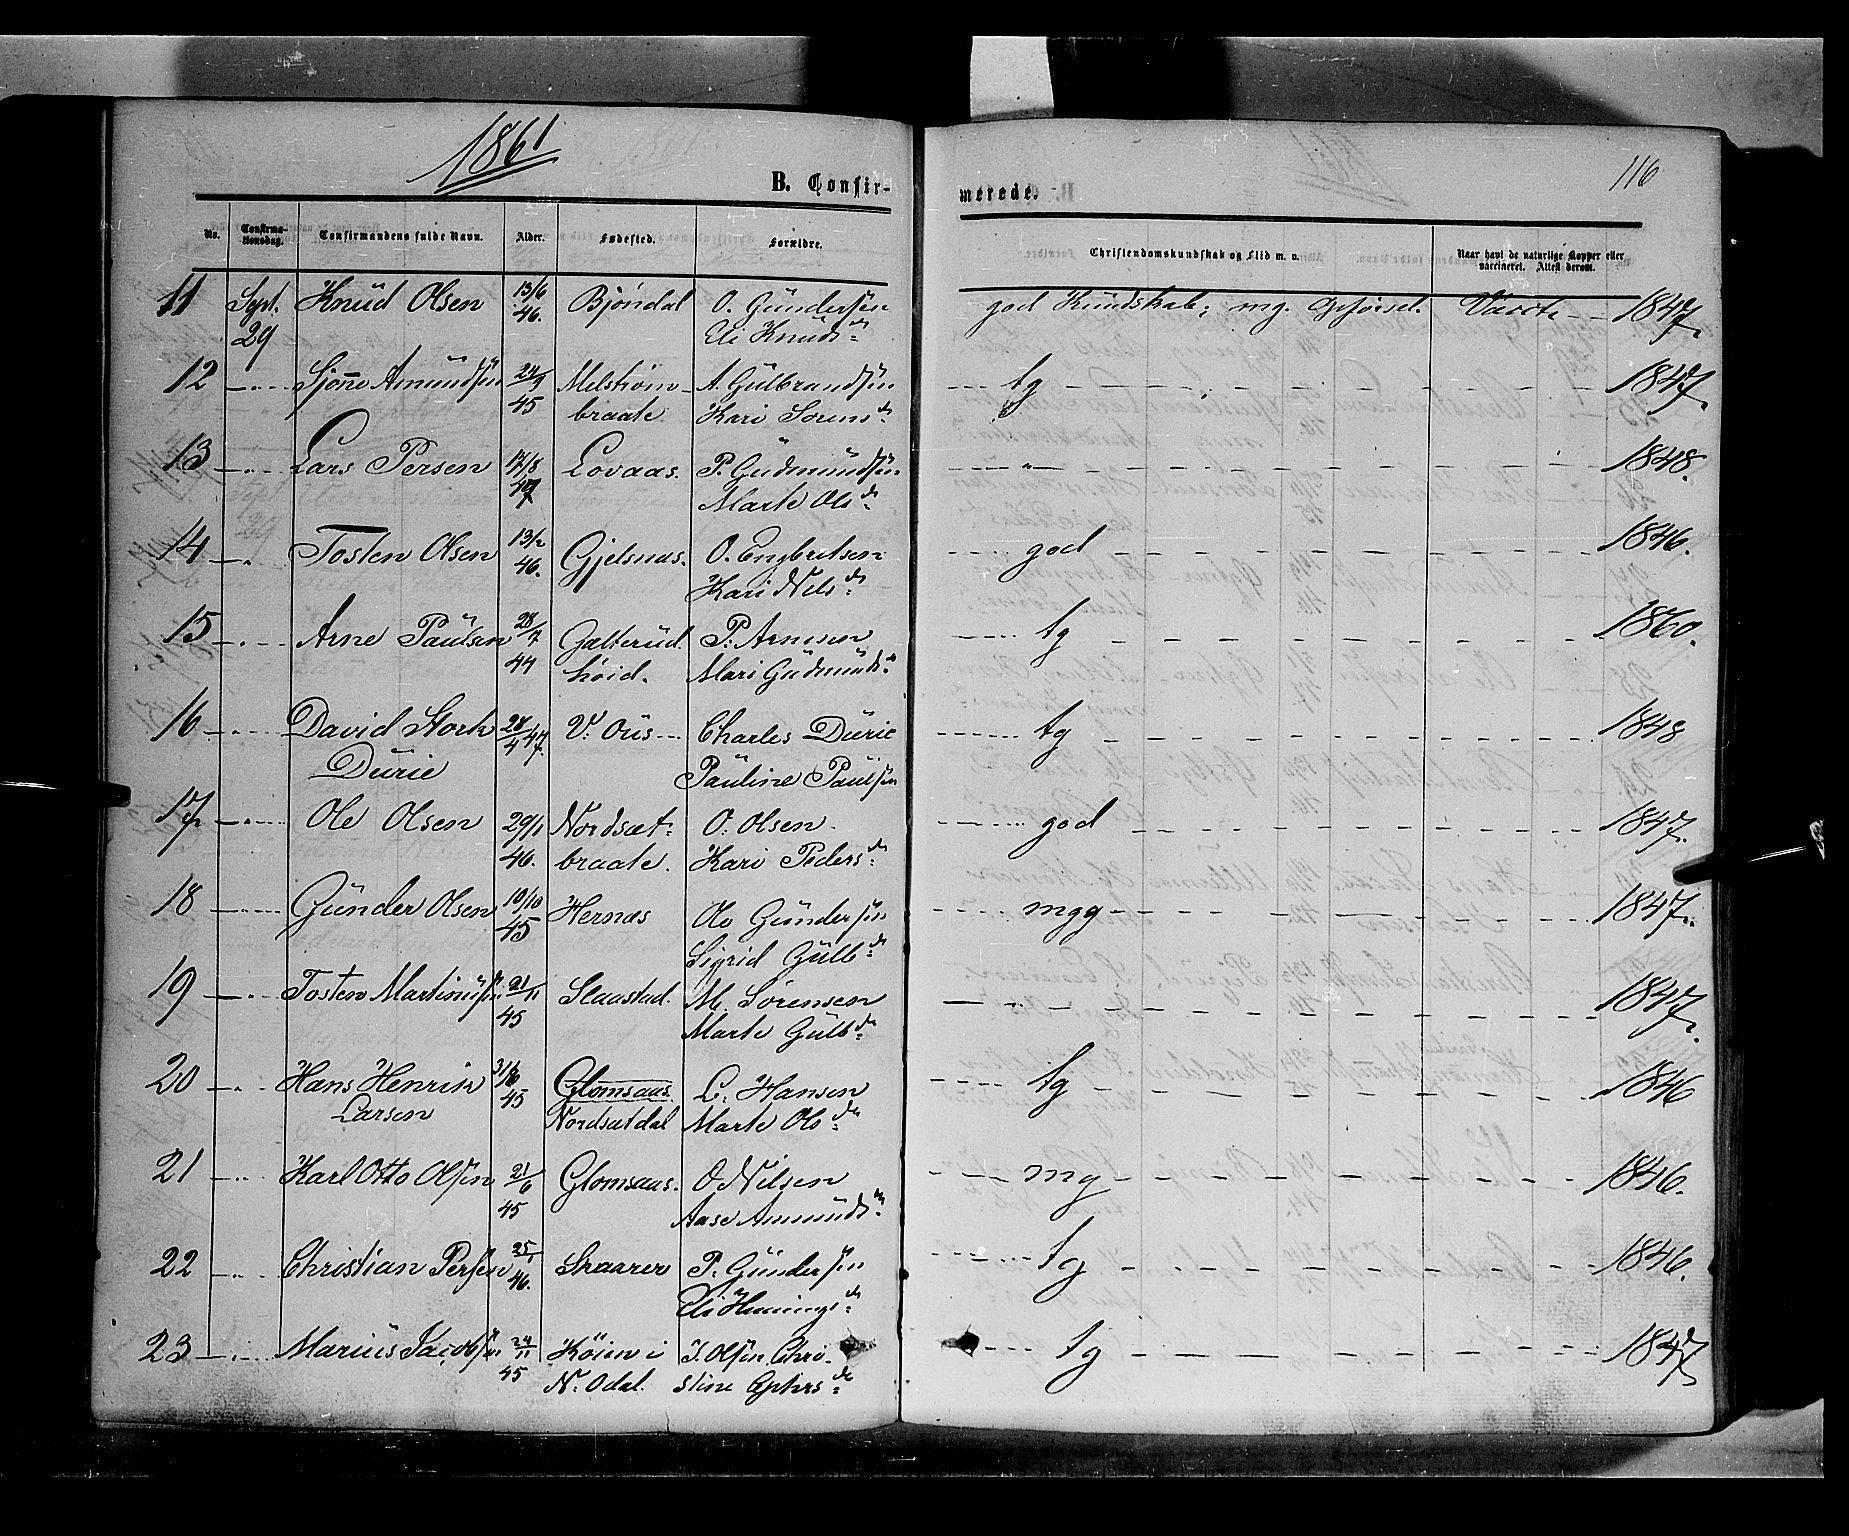 1861
B. Confirmerede.
116
No. Confirmationsdag. Confirmandens fulde Navn. Alder. Fødested. Forældre. Christendomskundskab og Flid m. v. Naar havt de naturlige Kopper eller vaccineret. Attest derom.
11 Sept. Knud Olsen 13/6 Bjöndal O. Gundersen god Kundskab; mg. Opførsel. Vacc. 1847.
29 46. Eli Knudsd:
12 Amundsen 24/9 Melstrøm A. Gulbrandsen tg 1847.
45 braate. Kari Sørensd:
13 Lars Persen 17/8 Lovaas. P. Gudmundsen " 1848.
47 Marte Olsd:
14 Tosten Olsen 13/2 Gjelsnas. O. Engbretsen god 1846.
46. Kari Nilsd:
15 Arne Paulsen 28/7 Galterud P. Arnesen tg 1860.
44 høid. Mari Gudmundsd:
16 David Stork 28/4 47. V. Ous Charles Durie tg 1848
Durie Pauline Paulsen
17 Ole Olsen 29/1 Nordsæt- O. Olsen god 1847.
46. braate. Kari Pedersd:
18 Gunder Olsen 10/10 Hernæs Ole Gundersen mgg 1847.
45 Sigrid Gulbd:
19 Tosten Martinusen 21/11 Slaastad. M. Sørensen 1847.
45 Marte Gulbd:
20 Hans Henrik Glomsaas. L. Hansen tg 1846
Larsen 45 Nordsætdal Marte Olsd:
21 Karl Otto Olsen 21/6 Glomsaas. O Nilsen mg 1846.
45 Aase Amundsd:
22 Christian Persen 25/1 Skaarer P. Gundersen tg 1846.
46. Eli Hemingsd:
23 Marius Jacobsen 24/11 Køien i J. Olsen. Chri- tg 1847
45 N. Odal. stine